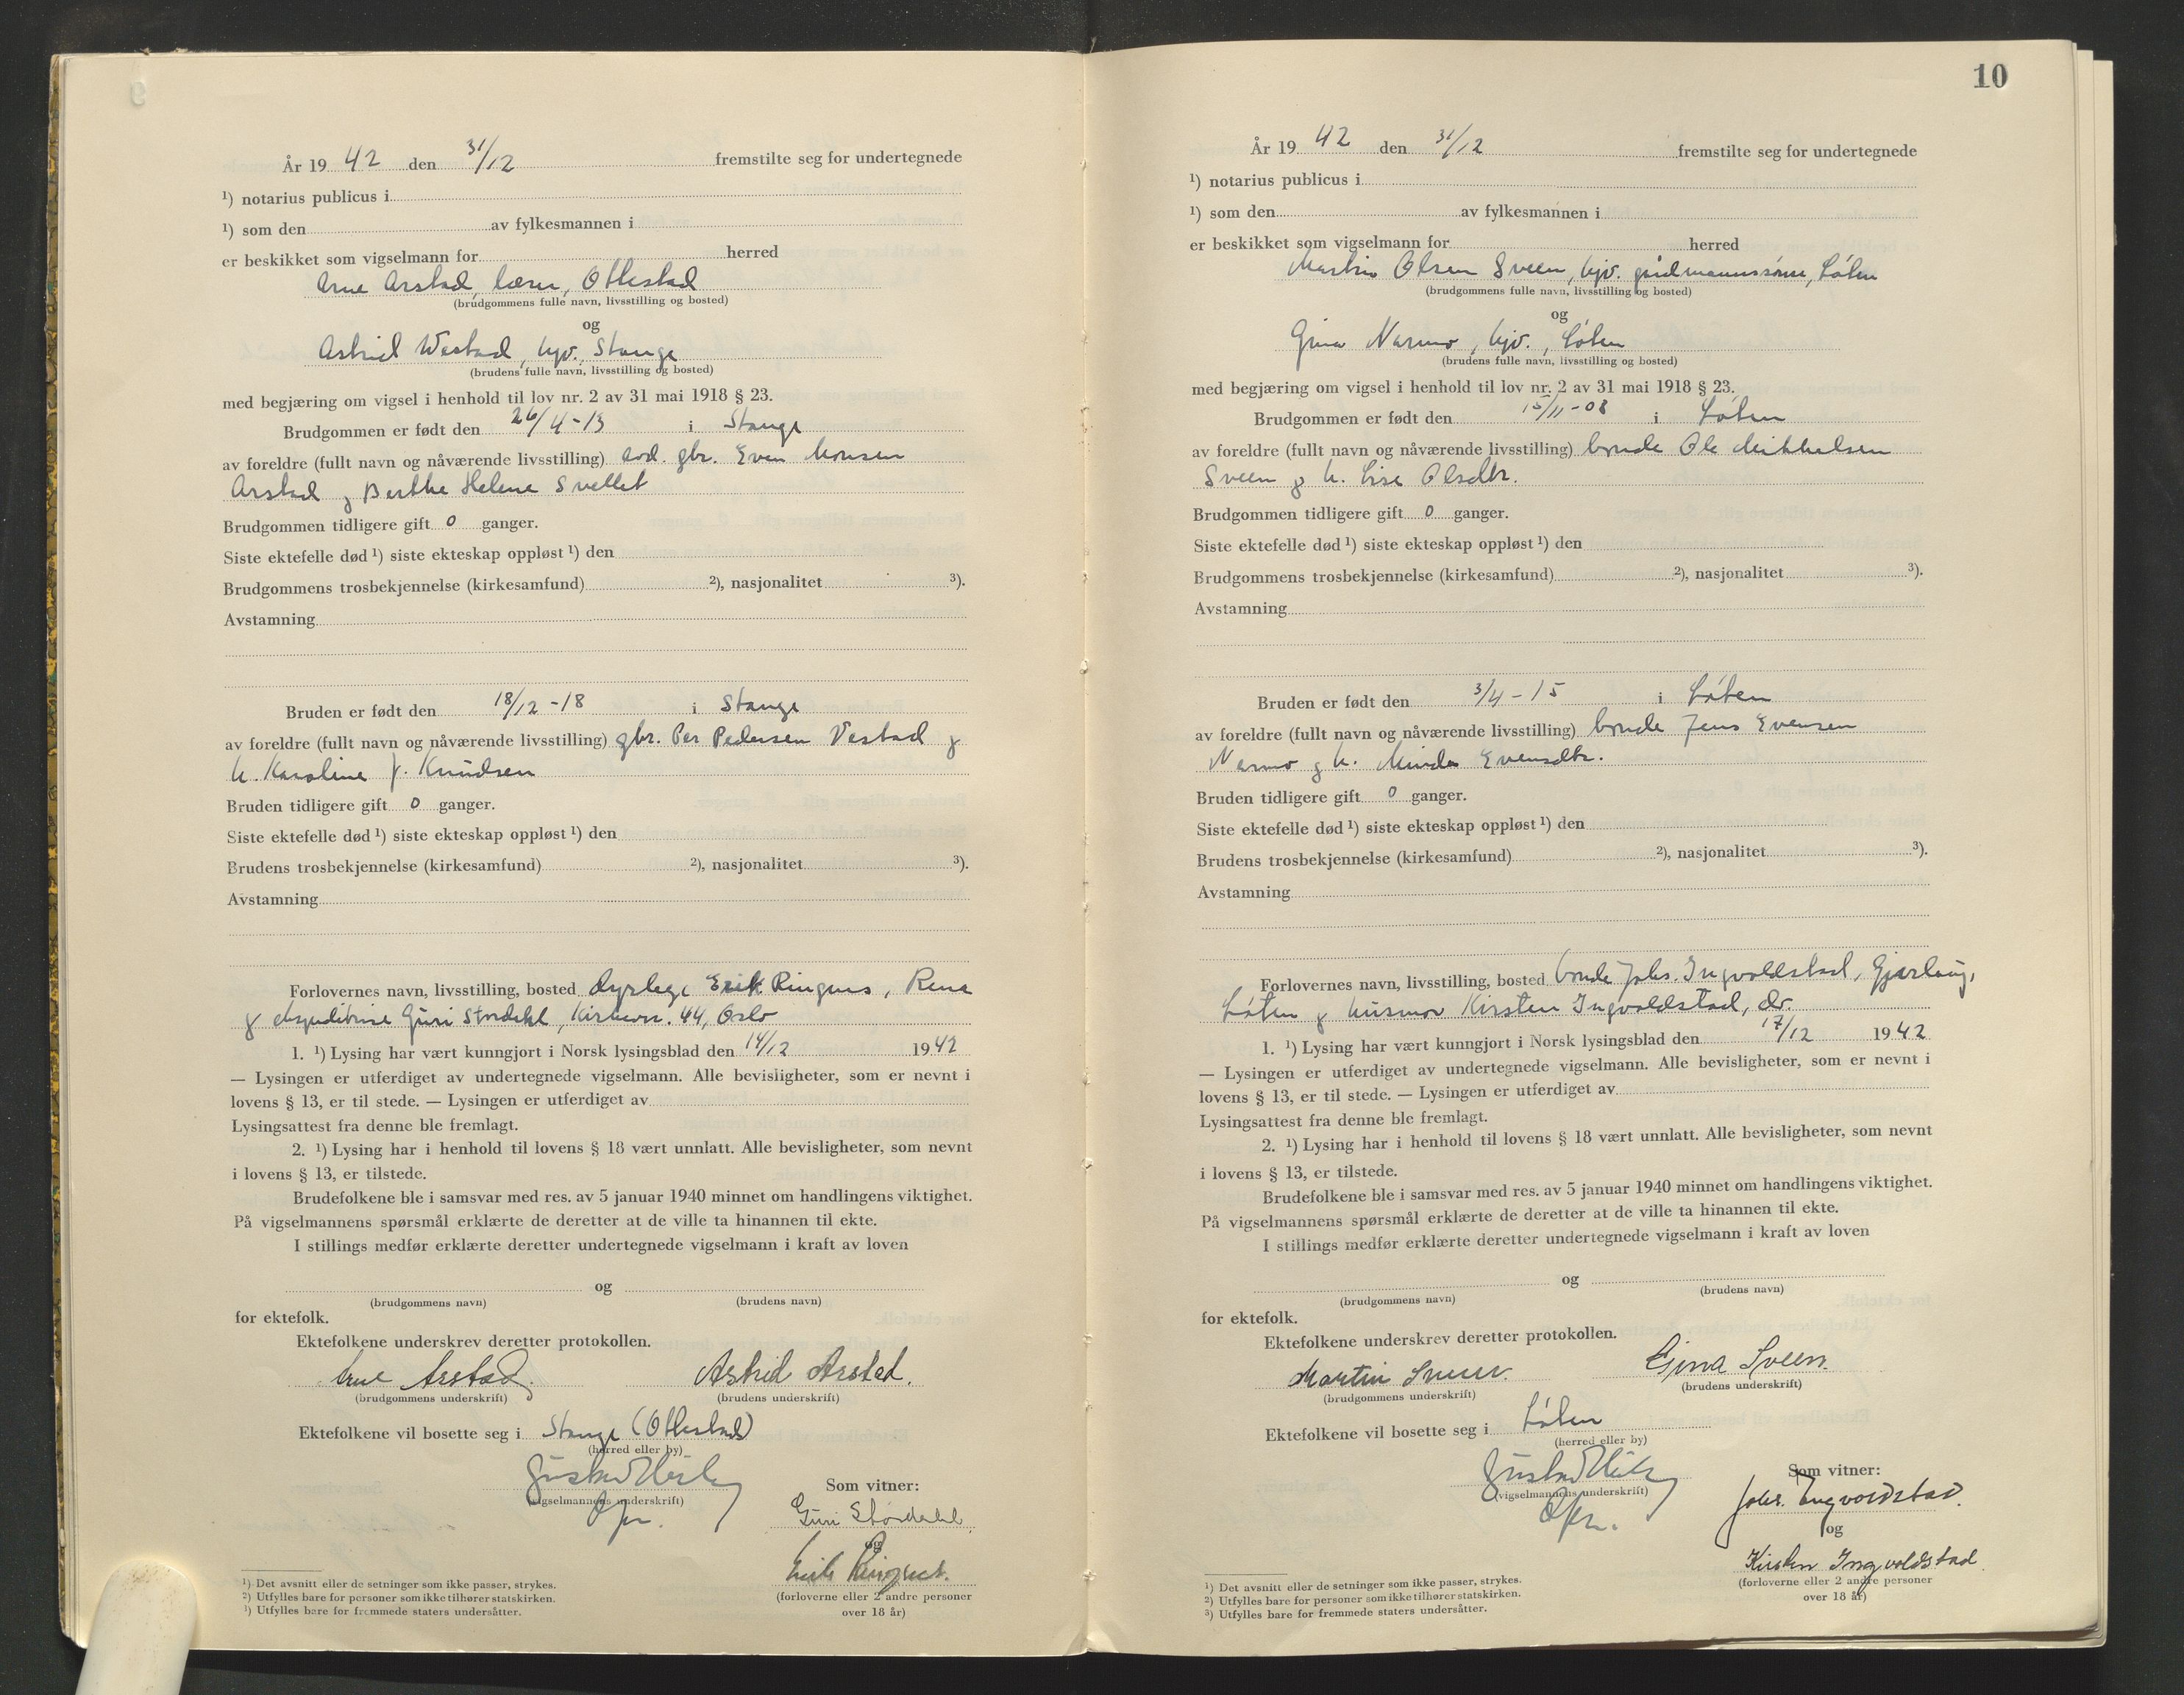 År 19 42 den 31/12 fremstilte seg for undertegnede
¹) notarius publicus i
¹) som den av fylkesmannen i
er beskikket som vigselmann for herred
Arne Arstad, lærer, Ottestad
(brudgommens fulle navn, livsstilling og bosted)
og
Astrid Westad, hjv., Stange
(brudens fulle navn, livsstilling og bosted)
med begjæring om vigsel i henhold til lov nr. 2 av 31 mai 1918 § 23.
Brudgommen er født den 26/4-13 i Stange
av foreldre (fullt navn og nåværende livsstilling) gbr. Even Monsen
Arstad g Berthe Helene Svellet
Brudgommen tidligere gift 0 ganger.
Siste ektefelle død ¹) siste ekteskap oppløst ¹) den
Brudgommens trosbekjennelse (kirkesamfund) ²), nasjonalitet ³).
Avstamning
Bruden er født den 18/12-18 i Stange
av foreldre (fullt navn og nåværende livsstilling) gbr. Per Pedersen Vestad g
h. Karoline f. Knudsen
Bruden tidligere gift 0 ganger.
Siste ektefelle død ¹) siste ekteskap oppløst ¹) den
Brudens trosbekjennelse (kirkesamfund) ²), nasjonalitet ³).
Avstamning
Forlovernes navn, livsstilling, bosted dyrlege Erik Ringnes, Rena
g Guri Stordahl, Kirkevn. 44, Oslo
1. ¹) Lysing har vært kunngjort i Norsk lysingsblad den 14/12 1942
— Lysingen er utferdiget av undertegnede vigselmann. Alle bevisligheter, som er nevnt i
lovens § 13, er til stede. — Lysingen er utferdiget av
Lysingsattest fra denne ble fremlagt.
2. ¹) Lysing har i henhold til lovens § 18 vært unnlatt. Alle bevisligheter, som nevnt
i lovens § 13, er tilstede.
Brudefolkene ble i samsvar med res. av 5 januar 1940 minnet om handlingens viktighet.
På vigselmannens spørsmål erklærte de deretter at de ville ta hinannen til ekte.
I stillings medfør erklærte deretter undertegnede vigselmann i kraft av loven
og
(brudgommens navn) (brudens navn)
for ektefolk.
Ektefolkene underskrev deretter protokollen.
Arne Arstad. Astrid Arstad.
(brudgommens underskrift) (brudens underskrift)
Ektefolkene vil bosette seg i Stange (Ottestad)
(herred eller by)
Gustav
(vigselmannens underskrift)
Som vitner:
Guri Stordahl
og
Erik Ringnes.
(forloverne eller 2 andre personer
over 18 år)
¹) Det avsnitt eller de setninger som ikke passer, strykes.
²) Utfylles bare for personer som ikke tilhører statskirken.
³) Utfylles bare for fremmede staters undersåtter.
10
År 19 42 den 31/12 fremstilte seg for undertegnede
¹) notarius publicus i
¹) som den av fylkesmannen i
er beskikket som vigselmann for herred
Martin Olsen Sveen, hjv. gårdmannssønn, Løten
(brudgommens fulle navn, livsstilling og bosted)
og
Gina Narmo, hjv., Løten
(brudens fulle navn, livsstilling og bosted)
med begjæring om vigsel i henhold til lov nr. 2 av 31 mai 1918 § 23.
Brudgommen er født den 15/11-08 i Løten
av foreldre (fullt navn og nåværende livsstilling) bonde Ole Mikkelsen
Sveen g h. Lise Olsdtr.
Brudgommen tidligere gift 0 ganger.
Siste ektefelle død ¹) siste ekteskap oppløst ¹) den
Brudgommens trosbekjennelse (kirkesamfund) ²), nasjonalitet ³).
Avstamning
Bruden er født den 3/4-15 i Løten
av foreldre (fullt navn og nåværende livsstilling) bonde Jens Evensen
Narmo g h. Minda Evensdtr.
Bruden tidligere gift 0 ganger.
Siste ektefelle død ¹) siste ekteskap oppløst ¹) den
Brudens trosbekjennelse (kirkesamfund) ²), nasjonalitet ³).
Avstamning
Forlovernes navn, livsstilling, bosted bonde Johs. Ingvoldstad, Gjerlaug,
Løten g husmor Kirsten Ingvoldstad, do.
1. ¹) Lysing har vært kunngjort i Norsk lysingsblad den 17/12 1942
— Lysingen er utferdiget av undertegnede vigselmann. Alle bevisligheter, som er nevnt i
lovens § 13, er til stede. — Lysingen er utferdiget av
Lysingsattest fra denne ble fremlagt.
2. ¹) Lysing har i henhold til lovens § 18 vært unnlatt. Alle bevisligheter, som nevnt
i lovens § 13, er tilstede.
Brudefolkene ble i samsvar med res. av 5 januar 1940 minnet om handlingens viktighet.
På vigselmannens spørsmål erklærte de deretter at de ville ta hinannen til ekte.
I stillings medfør erklærte deretter undertegnede vigselmann i kraft av loven
og
(brudgommens navn) (brudens navn)
for ektefolk.
Ektefolkene underskrev deretter protokollen.
Martin Sveen. Gina Sveen.
(brudgommens underskrift) (brudens underskrift)
Ektefolkene vil bosette seg i Løten
(herred eller by)
Gustav
(vigselmannens underskrift)
Som vitner:
Johs. Ingvoldstad.
og
Kirsten Ingvoldstad
(forloverne eller 2 andre personer
over 18 år)
¹) Det avsnitt eller de setninger som ikke passer, strykes.
²) Utfylles bare for personer som ikke tilhører statskirken.
³) Utfylles bare for fremmede staters undersåtter.